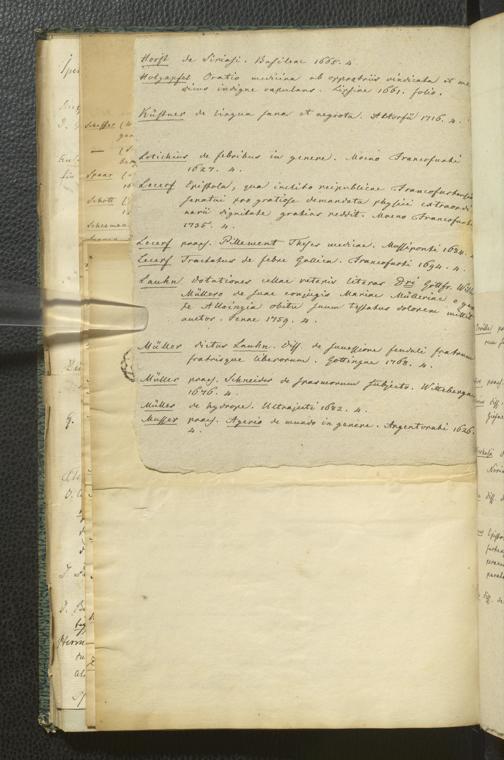 Horst de Siriasi. Basileae 1665. 4.
Holzapfel Oratio medicina ab opprobriis vindicata et me
dicus indigne vapulans. Lipsiae 1661. folio.
Küstner de lingua sana et aegrota. Altorfii 1716. 4.
Lotichius de febribus in genere. Moeno Francofurthi
1627. 4.
Lecerf Epistola, qua inclito reipublicae Francofurtensis
senatui pro gratiose demandata physici extraordi
narii dignitate gratias reddit. Moeno Francofurti
1735. 4.
Lecerf praes. Pillement Theses medicae. Mussiponti 1684. 4.
Lecerf Tractatus de febre Gallica. Francofurti 1694. 4.
Lauhn Dotationes cellae veteris literas Dri Gottfr. Wilh.
Müllero de suae conjugis Mariae Mülleriae o gente
de Alloingia obitu suum testatus dolorem mittit
auctor. Jenae 1759. 4.
Müller dictus Lauhn. Diss. de successione feudali fratrum
fratrisque liberorum. Gottingae 1768. 4.
Müller praes. Schneider de subjecto. Wittebergae
1676. 4.
Müller de hydrope. Ultrajecti 1682. 4.
Musser praes. Agerio de mundo in genere. Argentorati 1626.
4.
Scheffer
Spaar
Schott